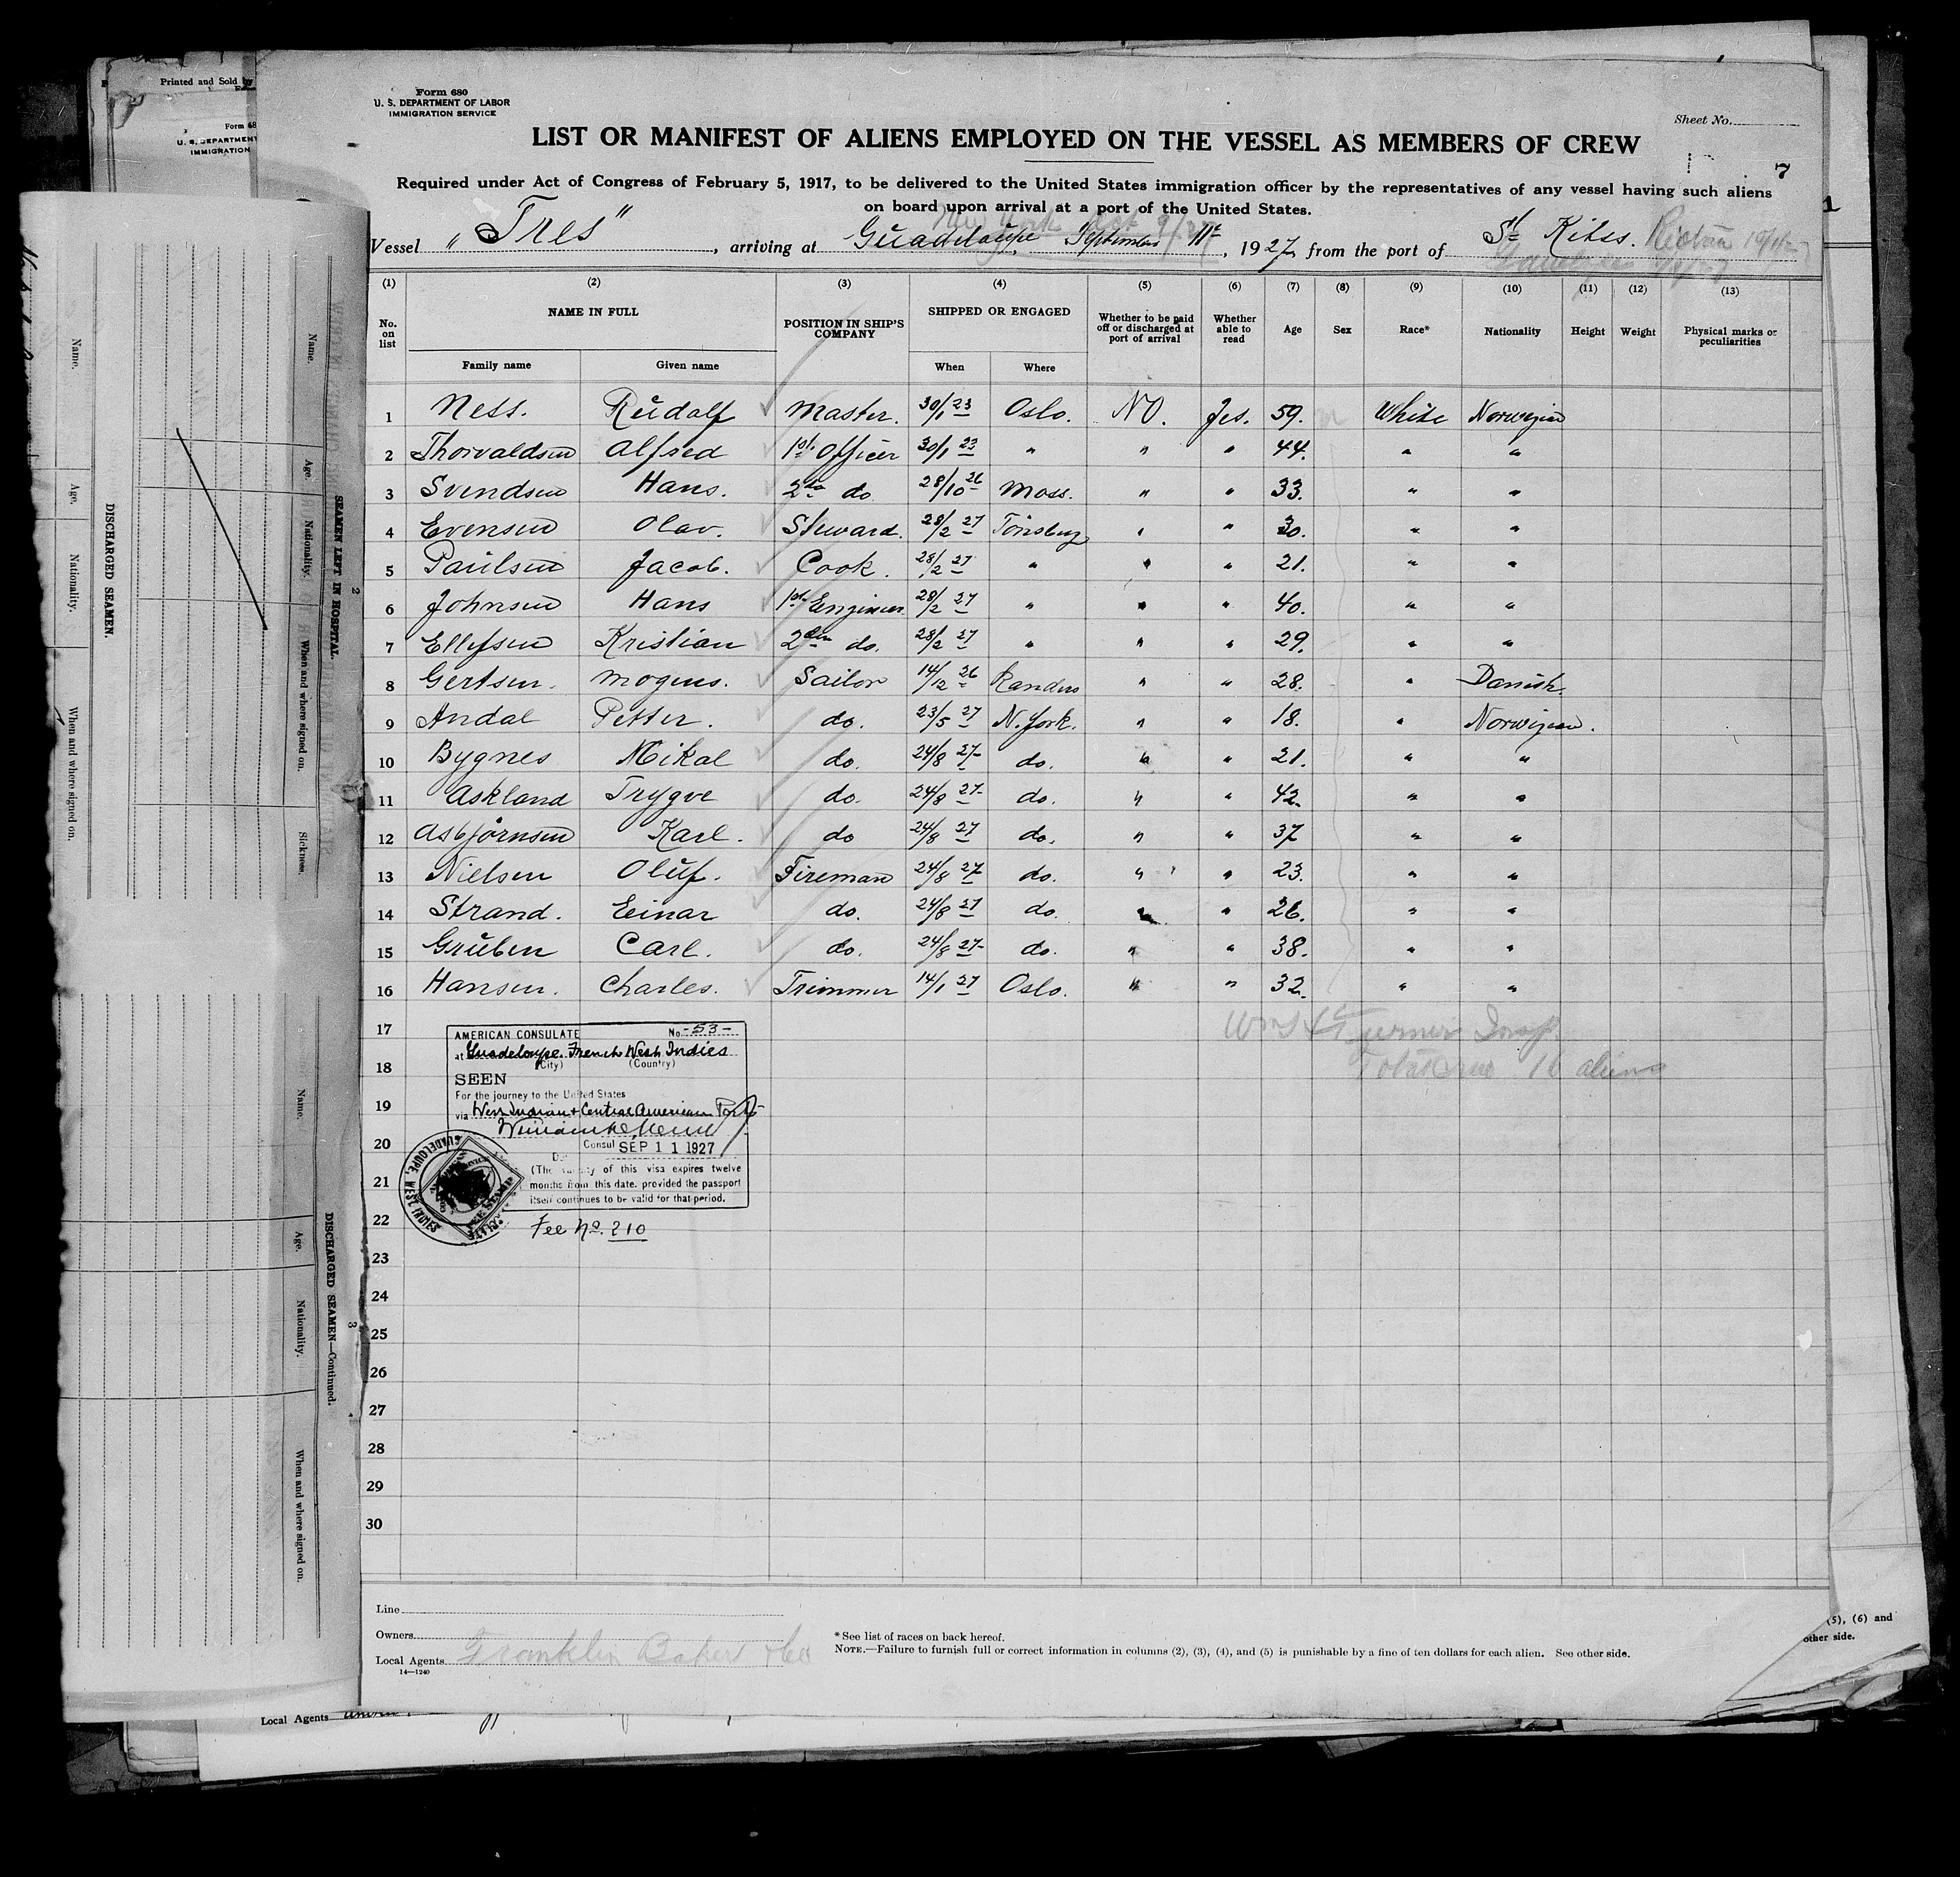 Printed and Sold by
Form 680
U. S. DEPARTMENT OF LABOR
IMMIGRATION SERVICE
Sheet No.
LIST OR MANIFEST OF ALIENS EMPLOYED ON THE VESSEL AS MEMBERS OF CREW
7
Required under Act of Congress of February 5, 1917, to be delivered to the United States immigration officer by the representatives of any vessel having such aliens
on board upon arrival at a port of the United States.
New York
Vessel "Tres", arriving at Guadeloupe September 11th, 1927, from the port of St Kitts.
(1) (2) (3) (4) (5) (6) (7) (8) (9) (10) (11) (12) (13)
No. on list NAME IN FULL Family name Given name POSITION IN SHIP'S COMPANY SHIPPED OR ENGAGED When Where Whether to be paid off or discharged at port of arrival Whether able to read Age Sex Race* Nationality Height Weight Physical marks or peculiarities
1 Ness. Rudolf Master. 30/1 23 Oslo. NO. Jes. 59. White Norwegian
2 Thorvaldsen Alfred 1st Officer 30/1 23 " " " 44. " "
3 Svendsen Hans. 2nd do 28/10 26 Moss. " " 33. " "
4 Evensen Olav. Steward. 28/2 27 Tönsberg " " 30. " "
5 Paulsen Jacob. Cook. 28/2 27 " " " 21. " "
6 Johnsen Hans 1st Engineer. 28/2 27 " " " 40. " "
7 Ellefsen Kristian 2den do. 28/2 27 " " " 29. " "
8 Gertsen. Mogens. Sailor 14/12 26 Randers " " 28. " Danish.
9 Andal Petter. do. 23/5 27 N. York. " " 18. " Norwegian.
10 Bygnes Mikal do. 24/8 27 do. " " 21. " "
11 Askland Trygve do. 24/8 27 do. " " 42. " "
12 Asbjörnsen Karl. do 24/8 27 do. " " 37 " "
13 Nielsen Oluf. Fireman 24/8 27 do. " " 23. " "
14 Strand. Einar do. 24/8 27 do. " " 26. " "
15 Gruben Carl. do. 24/8 27 do. " " 38. " "
16 Hansen. Charles. Trimmer 14/1 27 Oslo. " " 32. " "
17
18
19
20
21
22
23
24
25
26
27
28
29
30
Turner Insp.
Total Crew 16 aliens
AMERICAN CONSULATE No. -53-
at Guadeloupe. French West Indies
(City) (Country)
SEEN
For the journey to the United States
via West Indian & Central American Ports
Consul SEP 11 1927
(The validity of this visa expires twelve
months from this date. provided the passport
itself continues to be valid for that period.
GUADELOUPE, WEST INDIES
FEE STAMP
Fee No. 210
Line
Owners
Local Agents Franklin Baker & Co
14—1240
* See list of races on back hereof.
NOTE.—Failure to furnish full or correct information in columns (2), (3), (4), and (5) is punishable by a fine of ten dollars for each alien. See other side.
(5), (6) and
other side.
Local Agents
Form 68
U. S. DEPARTMENT
IMMIGRATION
SEAMEN LEFT IN HOSPITAL. 2
Name. Age. Nationality. When and where signed on. Sickness.
DISCHARGED SEAMEN.
Name. Age. Nationality. When and where signed on.
DISCHARGED SEAMEN—Continued. 3
Name. Age. Nationality. When and where signed on.